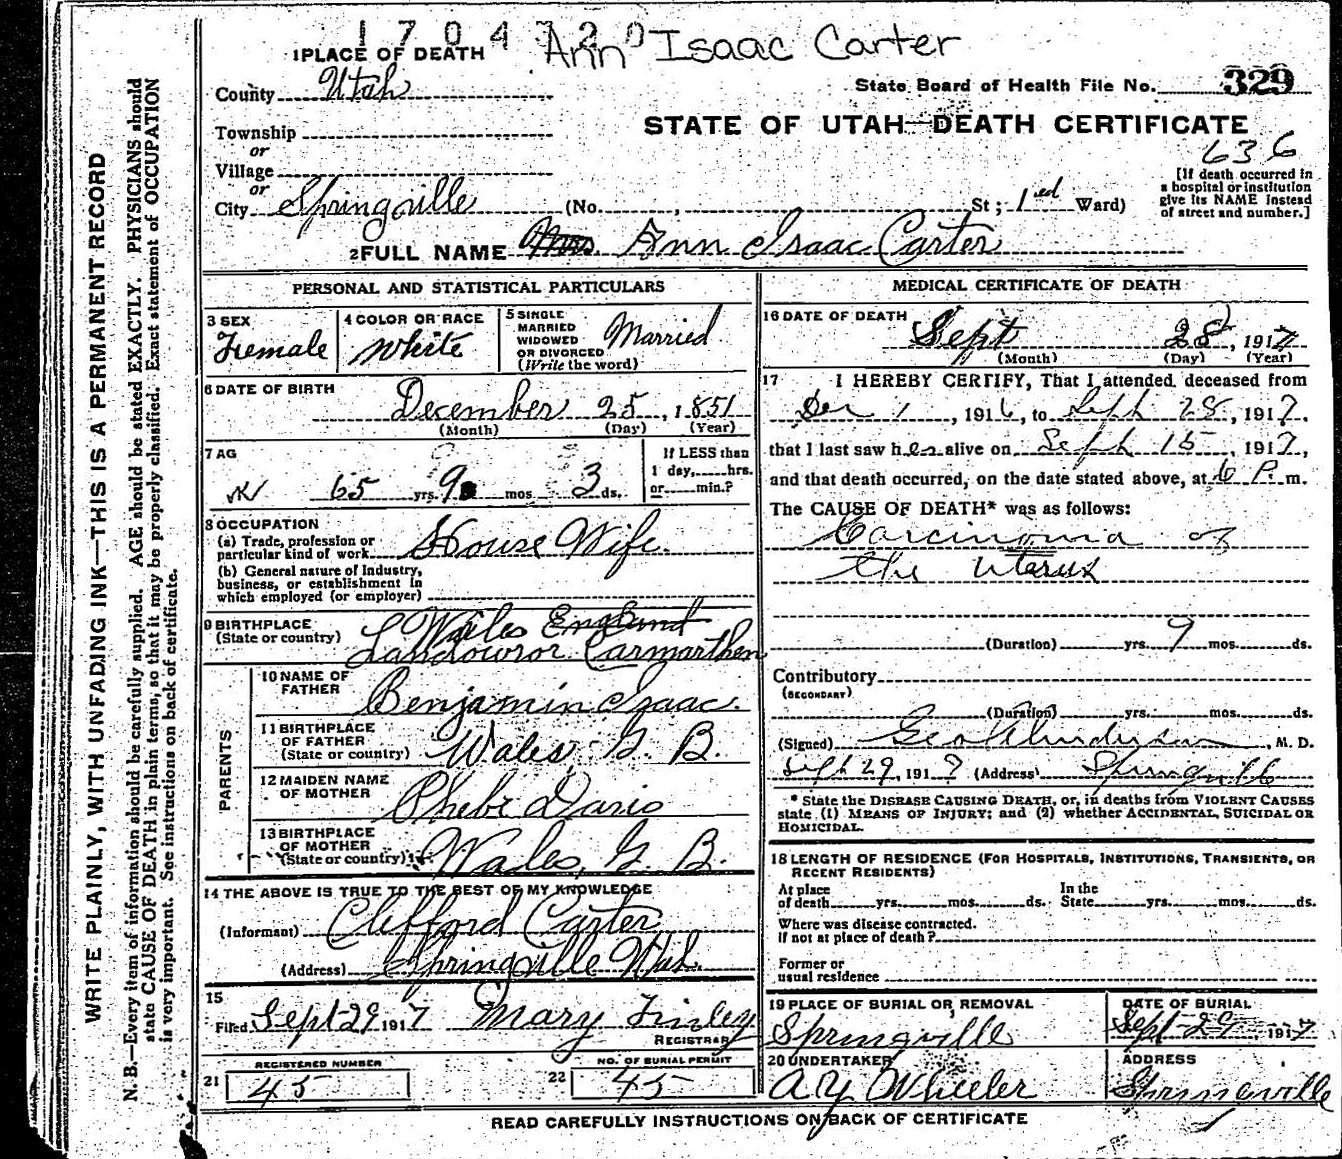 1704720
Ann Isaac Carter
1 PLACE OF DEATH
County Utah
State Board of Health File No. 329
Township
or
STATE OF UTAH—DEATH CERTIFICATE
636
Village
or
City Springville (No. , St; 1ed Ward)
[If death occurred in
a hospital or institution
give its NAME instead
of street and number.]
2 FULL NAME Mrs. Ann Isaac Carter
PERSONAL AND STATISTICAL PARTICULARS
3 SEX
Female
4 COLOR OR RACE
White
5 SINGLE
MARRIED
WIDOWED
OR DIVORCED
(Write the word)
Married
6 DATE OF BIRTH
December 25, 1851
(Month) (Day) (Year)
7 AG
65 yrs. 9 mos 3 ds.
If LESS than
1 day, hrs.
or min.?
8 OCCUPATION
(a) Trade, profession or
particular kind of work House Wife
(b) General nature of Industry,
business, or establishment in
which employed (or employer)
9 BIRTHPLACE
(State or country)
Wales England
Landowror Carmarthen
PARENTS
10 NAME OF
FATHER Benjamin Isaac.
11 BIRTHPLACE
OF FATHER
(State or country) Wales, G. B.
12 MAIDEN NAME
OF MOTHER Phebe Davis
13 BIRTHPLACE
OF MOTHER
(State or country) Wales, G. B.
14 THE ABOVE IS TRUE TO THE BEST OF MY KNOWLEDGE
(Informant) Clifford Carter
(Address) Springville Utah.
15
Filed Sept 29 1917 Mary Finley
REGISTRAR
REGISTERED NUMBER
21 45
NO. OF BURIAL PERMIT
22 45
MEDICAL CERTIFICATE OF DEATH
16 DATE OF DEATH
Sept 28, 1917
(Month) (Day) (Year)
17 I HEREBY CERTIFY, That I attended deceased from
Dec 1, 1916, to Sept 28, 1917.
that I last saw her alive on Sept 15, 1917,
and that death occurred, on the date stated above, at 6 P. m.
The CAUSE OF DEATH* was as follows:
Carcinoma of
the Uterus
(Duration) yrs. 9 mos. ds.
Contributory
(SECONDARY)
(Duration) yrs. mos. ds.
(Signed) Geo Anderson, M. D.
Sept 29, 1917 (Address) Springville
* State the DISEASE CAUSING DEATH, or, in deaths from VIOLENT CAUSES
state (1) MEANS OF INJURY; and (2) whether ACCIDENTAL, SUICIDAL OR
HOMICIDAL.
18 LENGTH OF RESIDENCE (FOR HOSPITALS, INSTITUTIONS, TRANSIENTS, OR
RECENT RESIDENTS)
At place
of death yrs. mos. ds.
In the
State yrs. mos. ds.
Where was disease contracted.
If not at place of death?
Former or
usual residence
19 PLACE OF BURIAL OR REMOVAL
Springville
DATE OF BURIAL
Sept 29, 1917
20 UNDERTAKER
A Y Wheeler
ADDRESS
Springville
READ CAREFULLY INSTRUCTIONS ON BACK OF CERTIFICATE
WRITE PLAINLY, WITH UNFADING INK—THIS IS A PERMANENT RECORD
N. B.—Every item of information should be carefully supplied. AGE should be stated EXACTLY. PHYSICIANS should
state CAUSE OF DEATH in plain terms, so that it may be properly classified. Exact statement of OCCUPATION
is very important. See instructions on back of certificate.